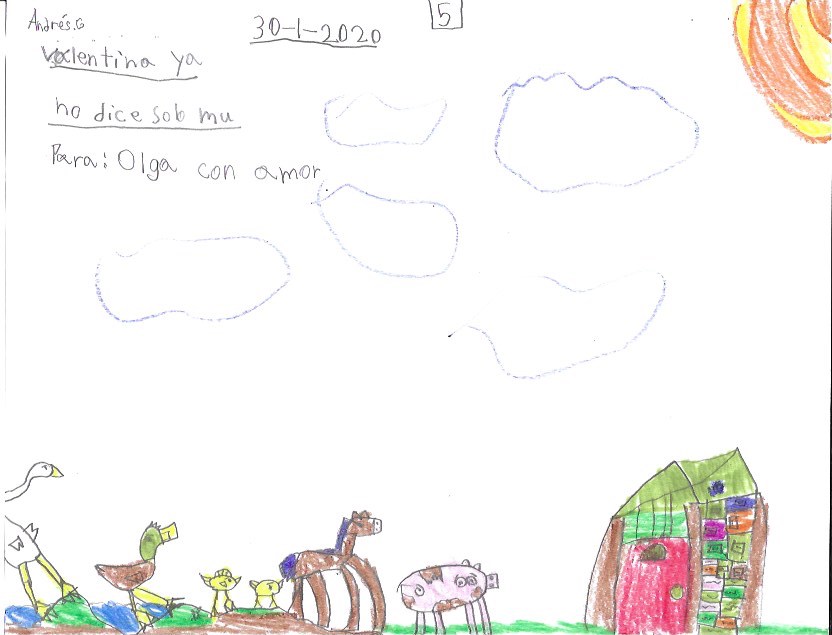 Andrés.G
30-1-2020
5
Valentina ya
no dice sob mu
Para: Olga con amor.